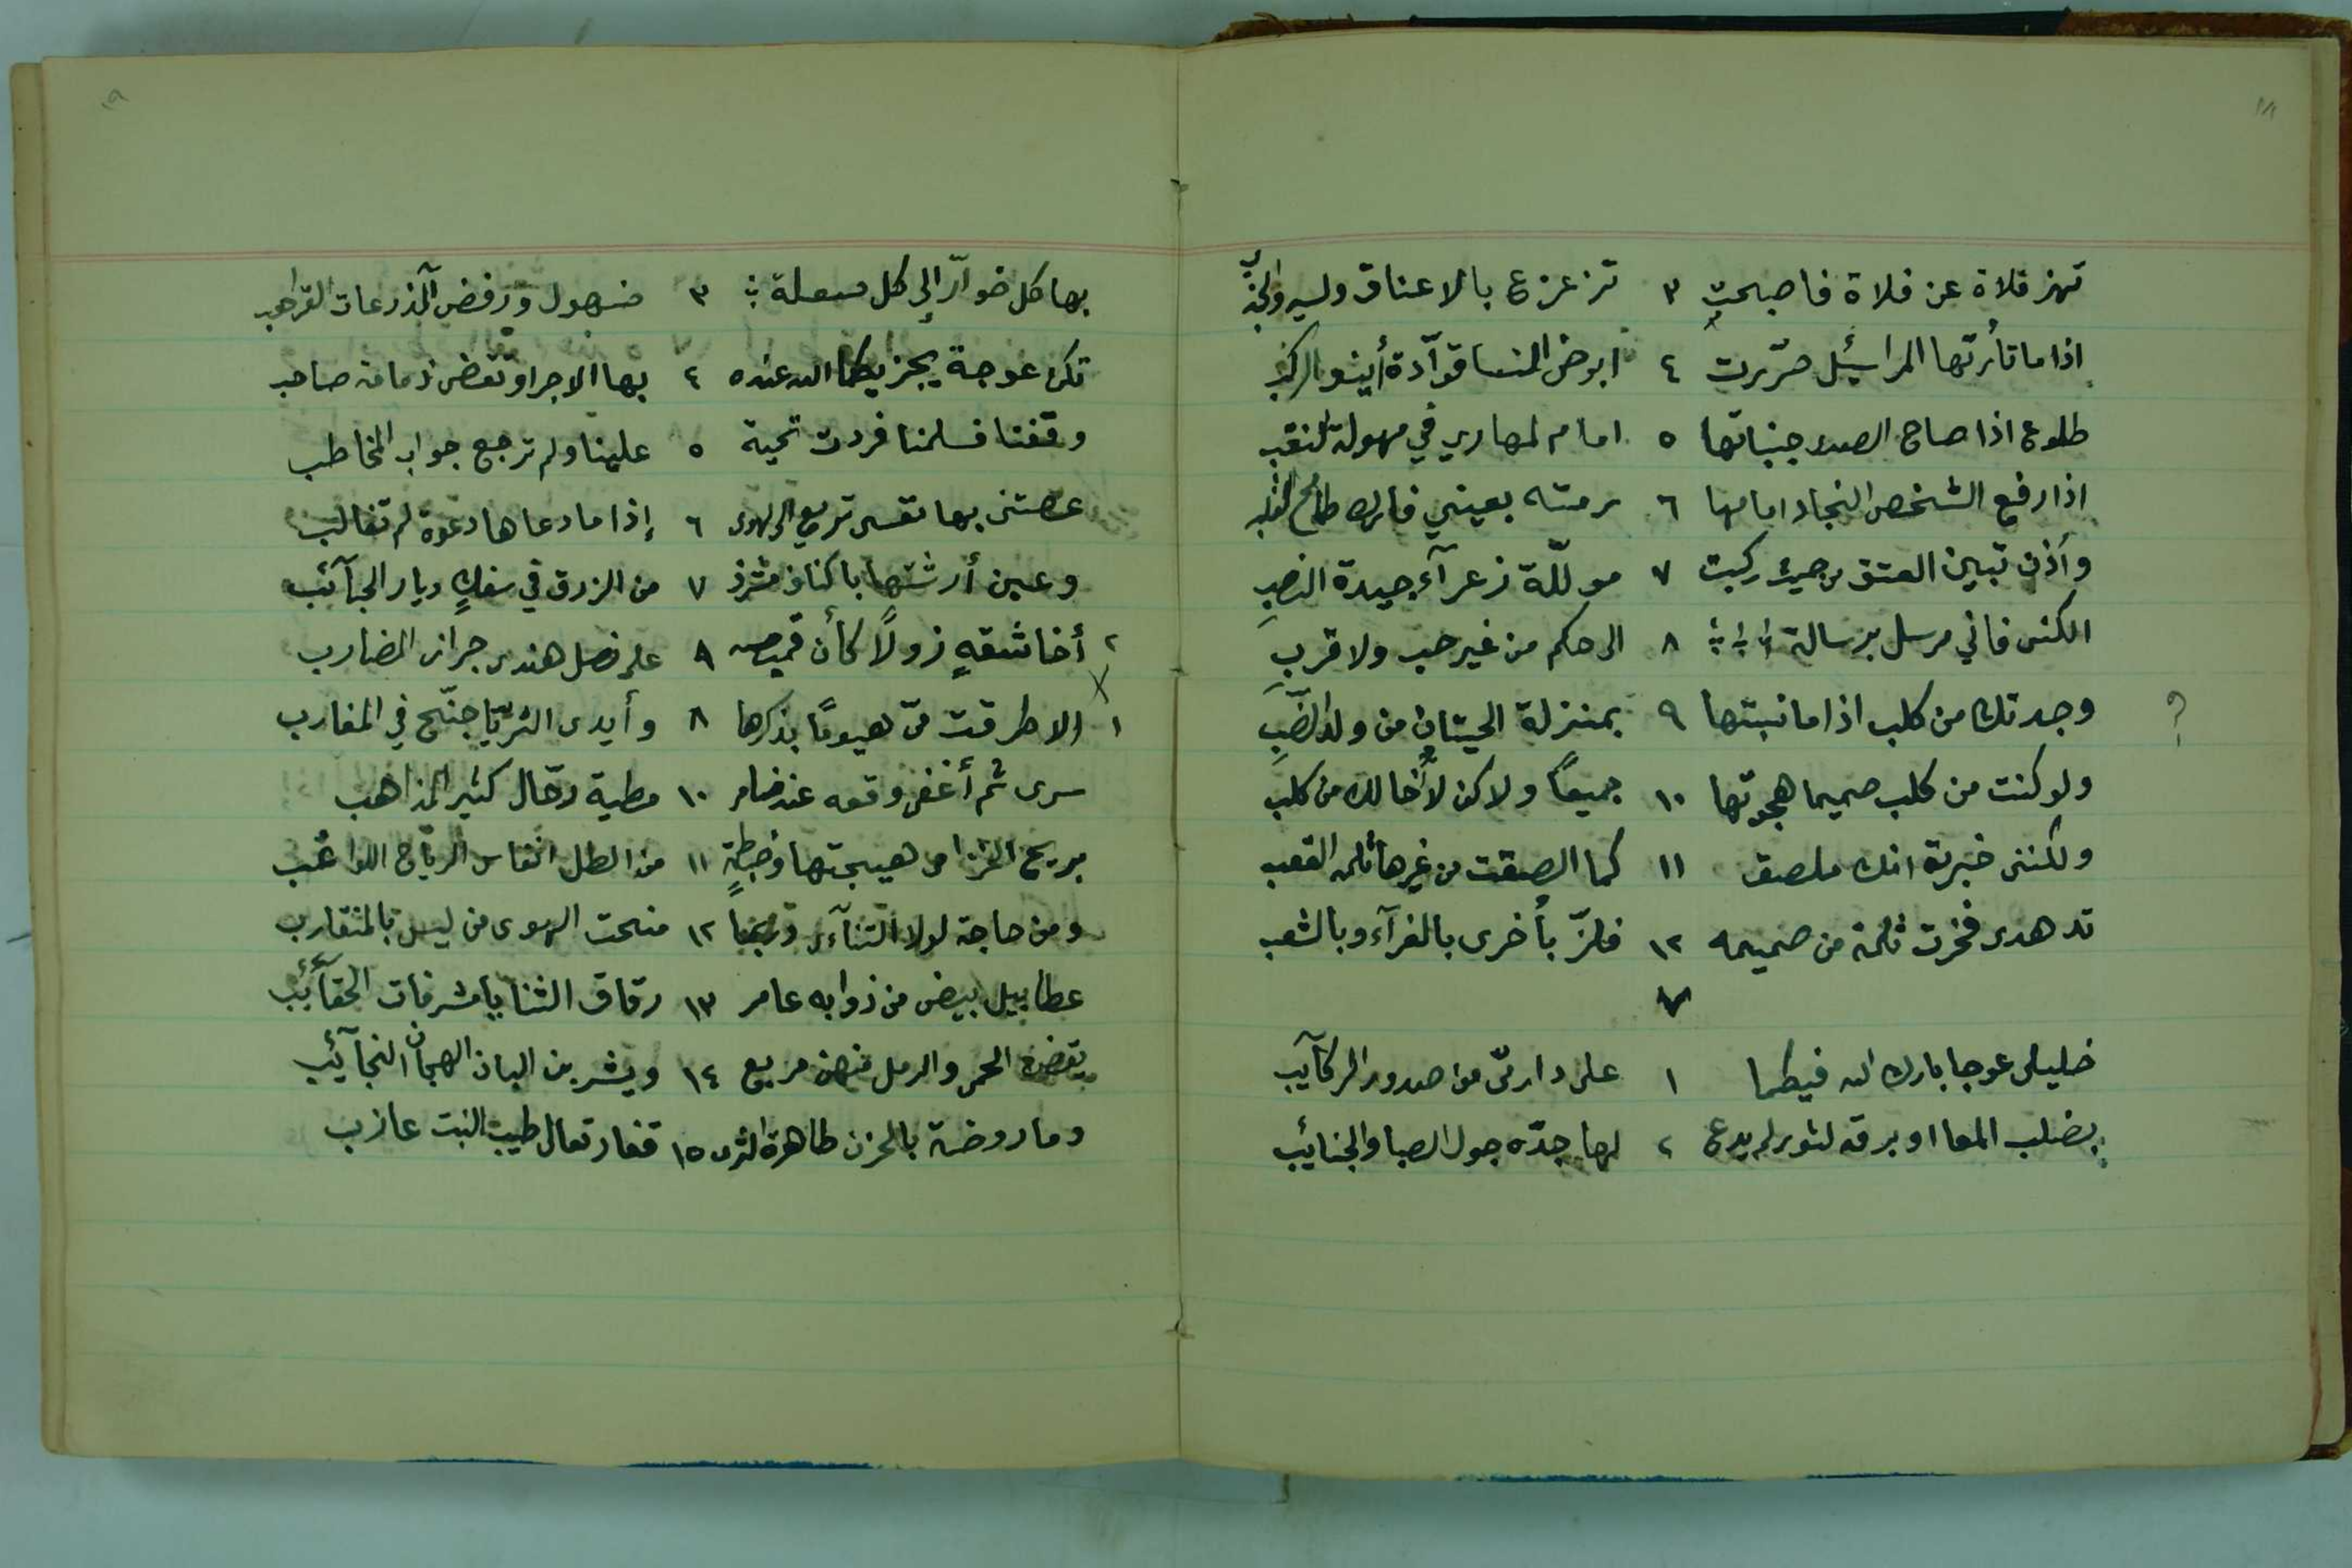 ١٨
تهز فلاة عن فلاة فاصبحت ٣ تزعزع بالاعناق والسير والجذب
اذا ما تأرتها المراسيل صررت ٤ ابوض النسا قوّادة أينق الركب
طلوع اذا صاح الصدى جنباتها ٥ امام المهاري في مهولة النقب
اذا رفع الشخص النجاد امامها ٦ رمته بعيني فارك طامح القلب
وأذن تبين العتق من حيث ركبت ٧ مولّلة زعرآء جيدة النصب
الكنى فاني مرسل برسالة ٨ الى حكم من غير حب ولا قرب
وجدتك من كلب اذا ما نسبتها ٩ بمنزلة الحيتان من ولد الضب
ولو كنت من كلب صميما هجوتها ١٠ جميعًا ولاكن لا أخالك من كلب
ولكننى خبرت انك ملصق ١١ كما الصقت من غيرها ثلمة القعب
تدهدى فخرت ثلمة من صميمه ١٢ فلزّ بأخرى بالغرآء وبالشعب
٧
خليلى عوجا بارك الله فيكما ١ على دار مىّ من صدور الركآيب
بصلب المعا او برقه الثور لم يدع ٢ لها جدّه جول الصبا والجنائب
١٩
بها كل خوّار إلى كل صعلة ٣ ضهول ورفض المذرعات القراهب
تكن عوجة يجزيكما الله عنده ٤ بها الاجر او تقضى ذمامة صاحب
وقفنا فسلمنا فردت تحية ٥ علينا ولم ترجع جواب المخاطب
عصتنى بها نفس تريع الى الهوى ٦ إذا ما دعاها دعوة لم تغالب
وعين أرشتها باكناف مشرف ٧ من الزرق في سفك ديار الحبآئب
٢ أخا شقةٍ زولًا كأن قميصه ٩ على نصل هندى جراز المضارب
١ الا طرقت مىّ هيومًا بذكرها ٨ وأيدى الثريّا جنّح في المغارب
سرى ثم أغفى وقعه عند ضامر ١٠ مطية رحّال كثير المذاهب
بريح الخزامى هيجتها وخبطةٍ ١١ من الطل انفاس الرياح اللواغب
ومن حاجة لولا التنآئى وربما ١٢ منحت الهوى من ليس بالمتقارب
عطابيل بيض من ذوابه عامر ١٣ رقاق الثنايا مشرفات الحقآئب
يقضن الحمى والرمل منهن مربع ١٤ ويشربن البان الهجان النجآئب
وما روضة بالحزن ظاهرة الثرى ١٥ قفار تعالى طيب النبت عازب